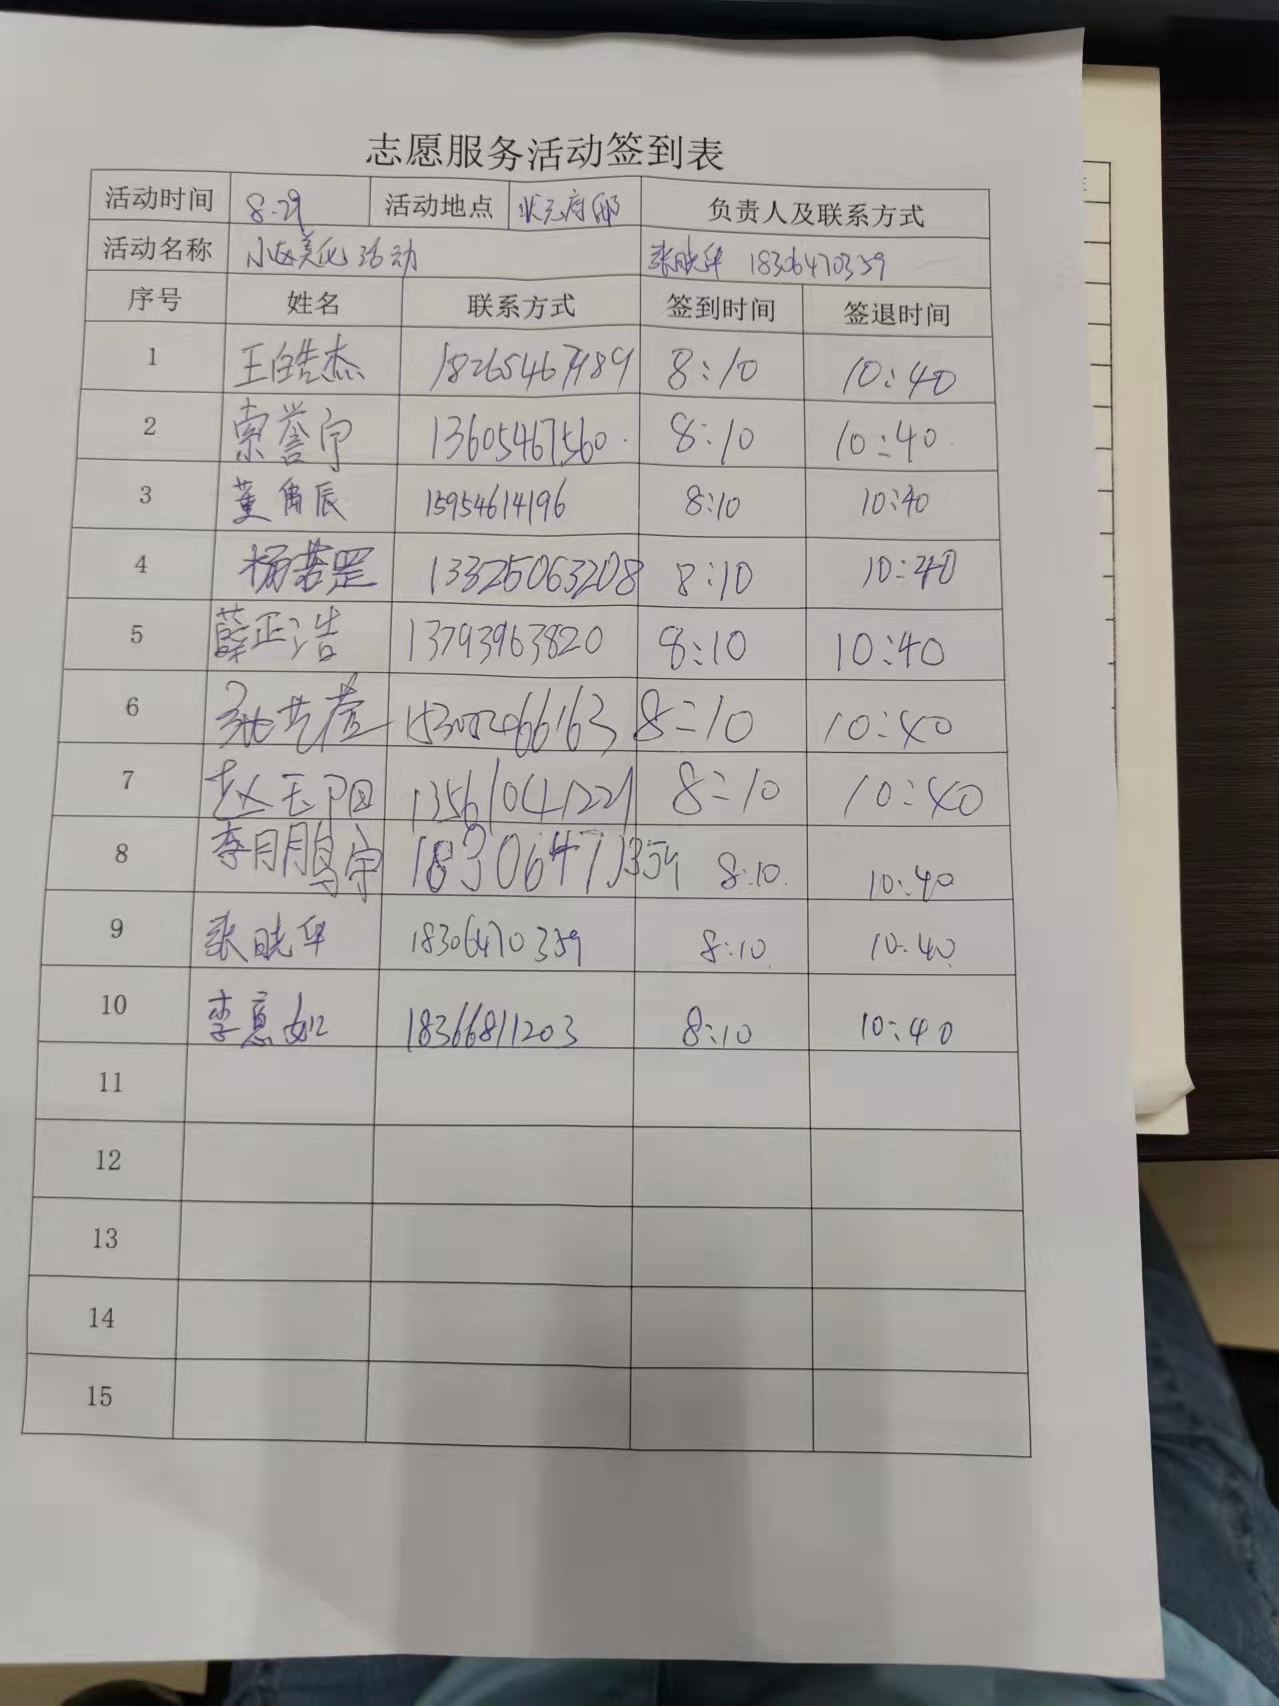 志愿服务活动签到表
活动时间 8.29 活动地点 状元府邸 负责人及联系方式
活动名称 小区美化活动 张晓华 18306470359
序号 姓名 联系方式 签到时间 签退时间
1 王皓杰 18265467989 8:10 10:40
2 索誉宁 13605467560 8:10 10:40
3 董禹辰 15954614196 8:10 10:40
4 杨若罡 13325063208 8:10 10:40
5 薛正浩 13793963820 8:10 10:40
6 8:10 10:40
7 赵玉阳 13561041221 8:10 10:40
8 李鹏宇 18306470359 8:10 10:40
9 张晓华 18306470359 8:10 10:40
10 李意如 18366811203 8:10 10:40
11
12
13
14
15